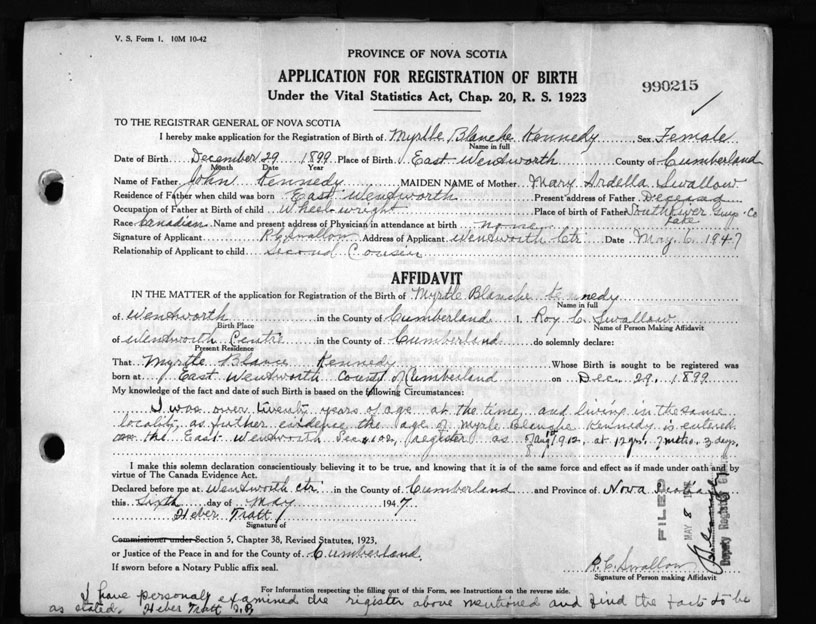 V. S. Form 1. 10M 10-42
PROVINCE OF NOVA SCOTIA
APPLICATION FOR REGISTRATION OF BIRTH
990215
Under the Vital Statistics Act, Chap. 20, R. S. 1923
TO THE REGISTRAR GENERAL OF NOVA SCOTIA
I hereby make application for the Registration of Birth of Myrtle Blanche Kennedy Sex Female
Name in full
Date of Birth December 29 1899 Place of Birth East Wentworth County of Cumberland
Month Date Year
Name of Father John Kennedy MAIDEN NAME of Mother Mary Ardella Swallow
Residence of Father when child was born East Wentworth Present address of Father Deceased
Occupation of Father at Birth of child Wheelwright Place of birth of Father Guys. Co
Race Canadian Name and present address of Physician in attendance at birth none
Signature of Applicant R C Swallow Address of Applicant Wentworth Ctr. Date May 6, 1947
Relationship of Applicant to child Second Cousin
AFFIDAVIT
IN THE MATTER of the application for Registration of the Birth of Myrtle Blanche Kennedy
Name in full
of Wentworth in the County of Cumberland I, Roy C. Swallow
Birth Place Name of Person Making Affidavit
of Wentworth Centre in the County of Cumberland do solemnly declare:
Present Residence
That Myrtle Blance Kennedy Whose Birth is sought to be registered was
born at East Wentworth County of Cumberland on Dec. 29, 1899
My knowledge of the fact and date of such Birth is based on the following Circumstances:
I was over twenty years of age at the time, and living in the same
locality, as further evidence the age of Myrle Blanche Kennedy is entered
on the East Wentworth register as 1912, at 12 yrs. 7 mths. 3 days.
I make this solemn declaration conscientiously believing it to be true, and knowing that it is of the same force and effect as if made under oath and by
virtue of The Canada Evidence Act.
Declared before me at Wentworth ctr. in the County of Cumberland and Province of Nova Scotia
this Sixth day of May 1947
Heber Tratt
Signature of
Commissioner under Section 5, Chapter 38, Revised Statutes, 1923,
or Justice of the Peace in and for the County of Cumberland.
If sworn before a Notary Public affix seal.
FILED
MAY 8
Deputy Registrar
R. C. Swallow
Signature of Person making Affidavit
For Information respecting the filling out of this Form, see Instructions on the reverse side.
I have personaly examined the register above mentioned and find the facts to be
as stated. Heber Tratt J.P.